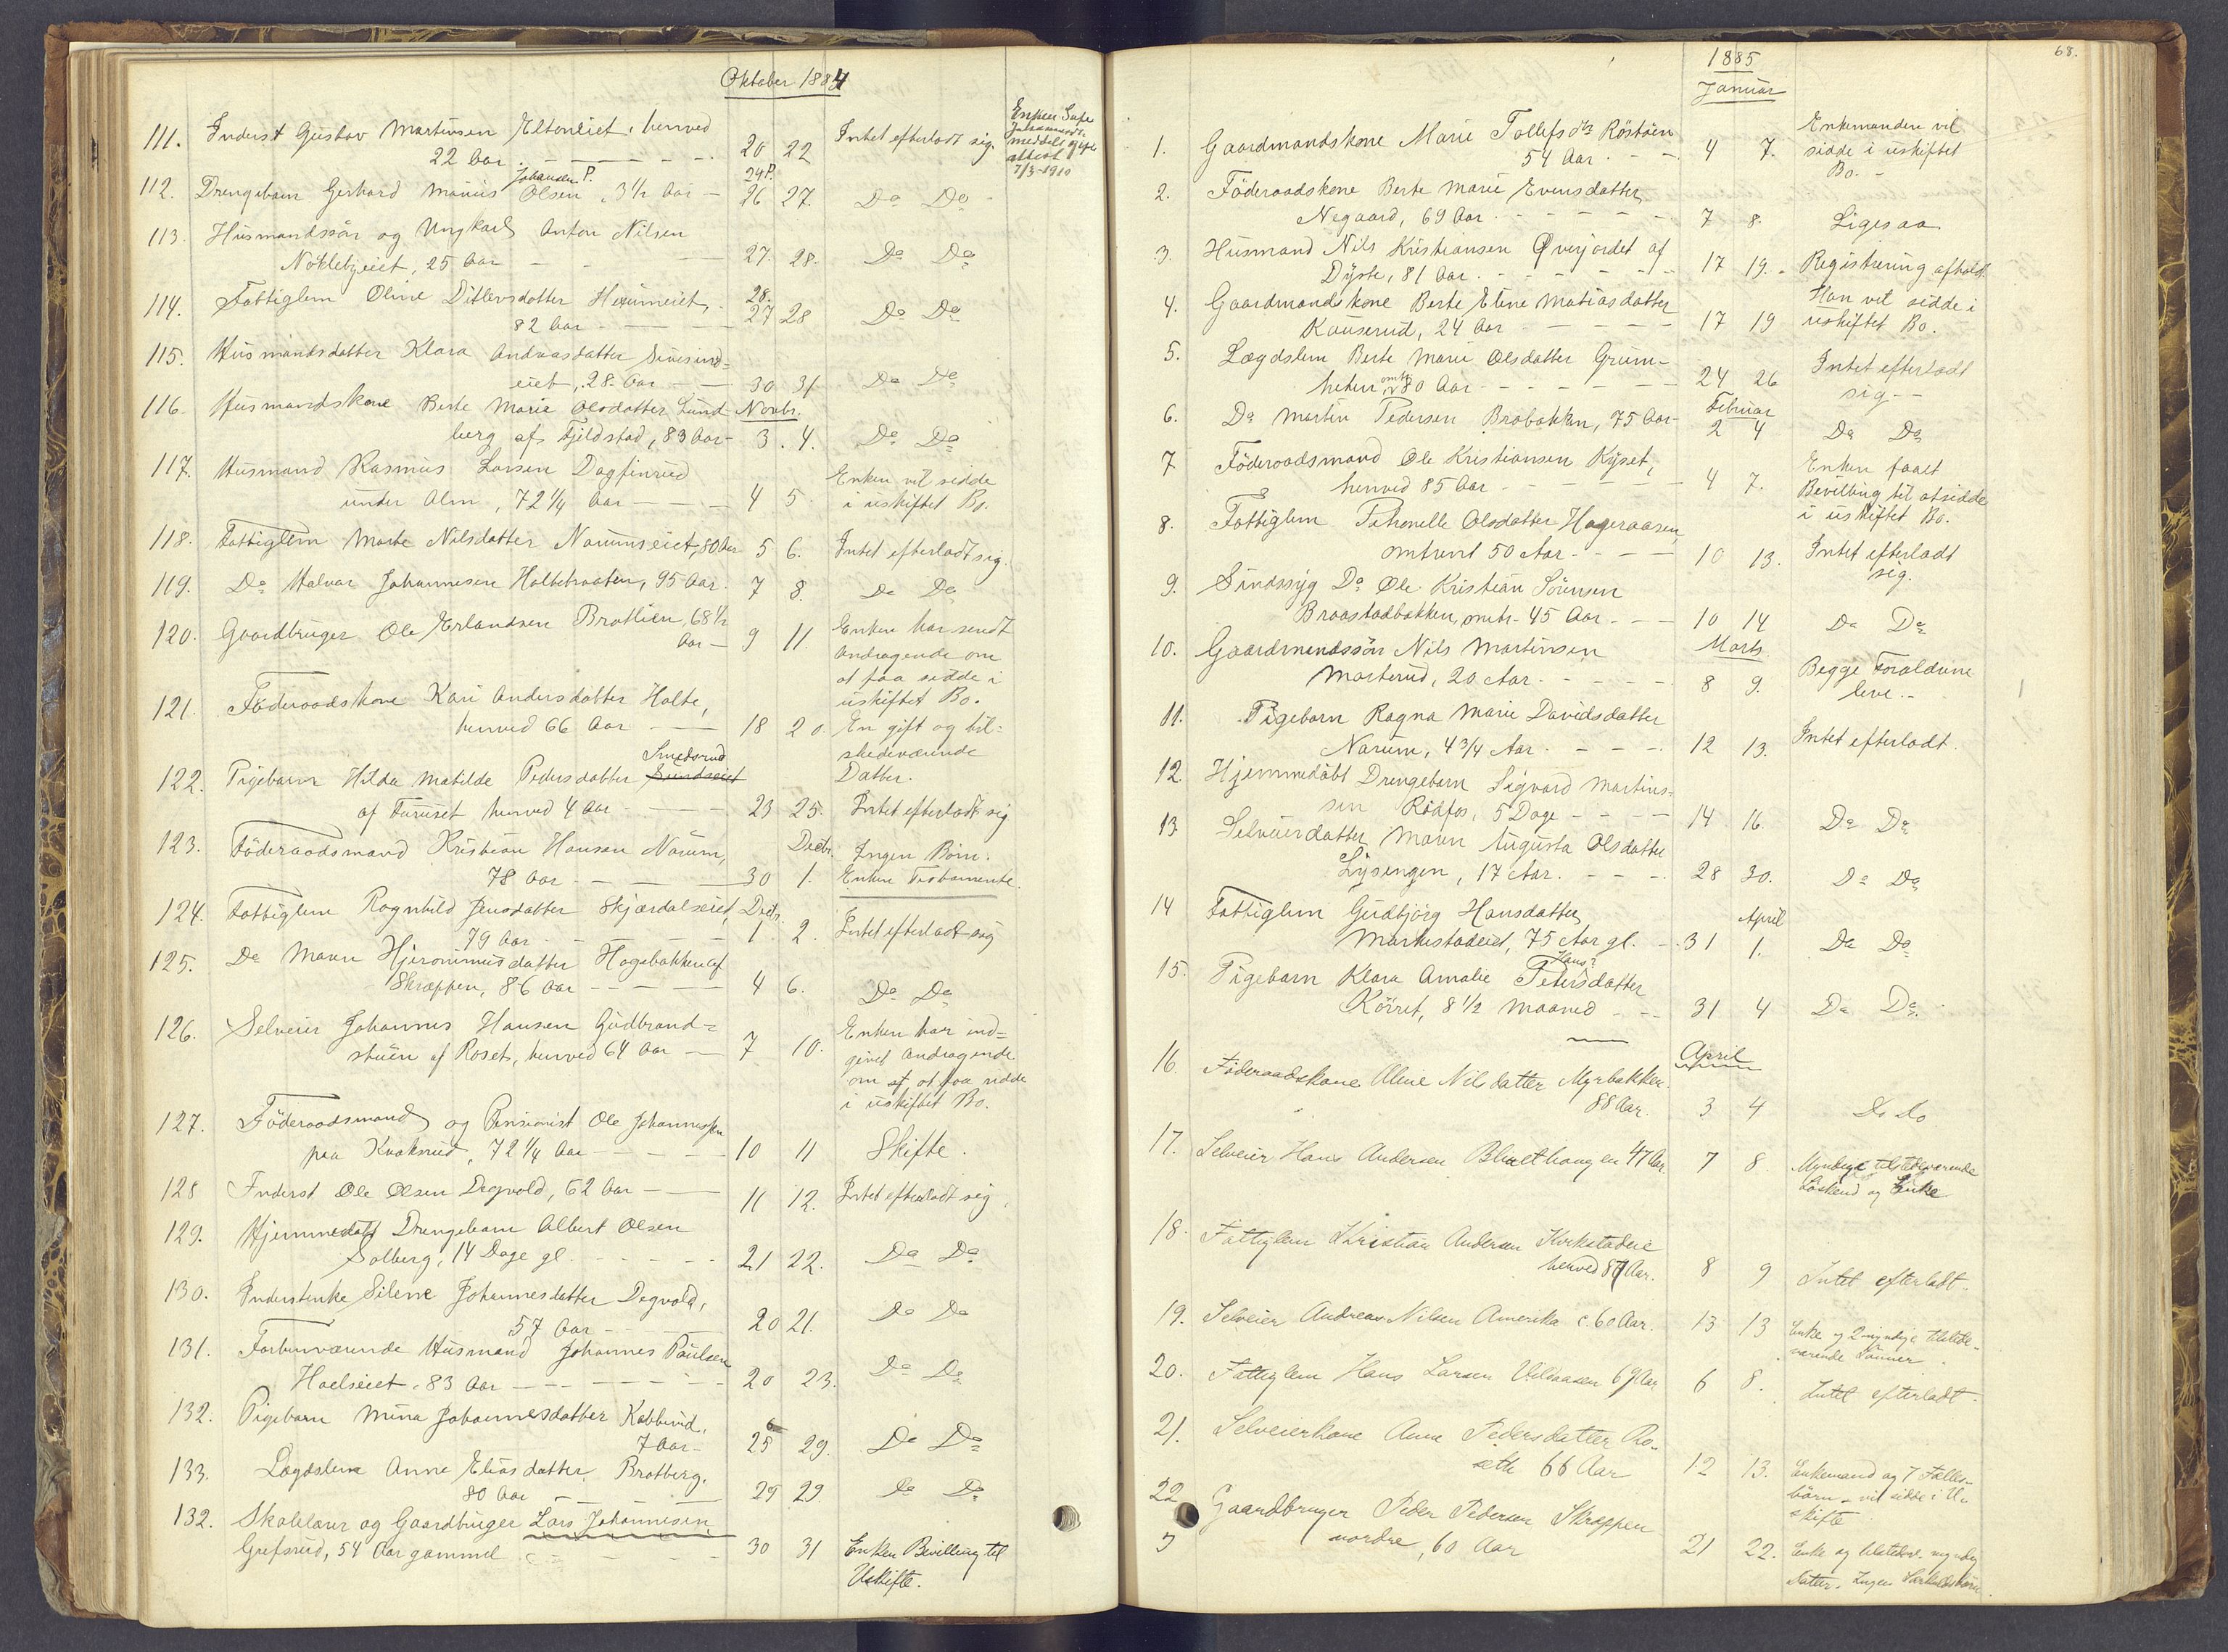 Oktober 1884
111. Inderst Gustav Martinsen Eltoneiet, henved
22 Aar. 20 22 Intet efterladt sig.
Enken
meddelt
attest
7/3-1910
Johansen P. 24 P.
112. Drengebarn Gerhard Marius Olsen, 3 1/2 Aar - 26 27. Do Do
113. Husmandssön og Ungkarl Anton Nilsen
Nöklebyeiet, 25 Aar 27. 28. Do Do
114. Fattiglem Oline Ditlevsdatter 28.
82 Aar 27 28 Do Do
115. Husmandsdatter Klara Andreasdatter
eiet, 28 Aar 30 31 Do Do
116. Husmandskone Berte Marie Olsdatter Lund- Novbr.
berg af Fjeldstad, 83 Aar - 3. 4. Do Do
117. Husmand Rasmus Larsen Dagfinrud Enken vil sidde
under Alm, 72 1/4 Aar 4 5. i uskiftet Bo.
118. Fattiglem Marte Nilsdatter Narumseiet, 80 Aar 5 6. Intet efterladt sig.
119. Do Halvor Johannesen Holtebraaten, 95 Aar. 7 8. Do Do
120. Gaardbruger Ole Erlandsen Brotlien, 68 1/2
Aar - 9 11. Enken har sendt
Andragende om
at faa sidde i
uskiftet Bo.
121. Föderaadskone Kari Andersdatter Holte,
henved 66 Aar 18 20. En gift og til-
stedeværende
Datter.
Smedsrud
122. Pigebarn Hilda Matilde Pedersdatter Sundseiet
af Furuset henved 4 Aar 23 25. Intet efterladt sig
123. Föderaadsmand Kristian Hansen Narum, Decbr. Ingen Börn.
78 Aar 30 1. Enken Testamente.
124. Fattiglem Ragnhild Jensdatter Skjærdalseiet, Decbr.
79 Aar 1 2. Intet efterladt sig
125. Do Maren Hjeronimusdatter Hagebakken af
Skræppen, 86 Aar 4 6. Do Do
126. Selveier Johannes Hansen Gudbrand-
stuen af Roset, henved 64 Aar 7 10. Enken har ind-
givet Andragende
om at at faa sidde
i uskiftet Bo.
127. Föderaadsmand og Pensionist Ole Johannessen
paa Kvakrud, 72 1/4 Aar 10 11 Skifte.
128 Inderst Ole Olsen Degvold, 62 Aar 11 12. Intet efterladt sig.
129. Hjemmedöbt Drengebarn Albert Olsen
Solberg, 14 Dage gl. 21 22. Do Do
130. Inderstenke Silene Johannesdatter Degvold,
57 Aar 20 21. Do Do
131. Forhenværende Husmand Johannes Paulsen
Hoelseiet, 83 Aar 20 23. Do Do
132. Pigebarn Mina Johannesdatter Kabberud,
7 Aar - 25 29. Do Do
133. Lægdslem Anne Eliasdatter Brotberg,
80 Aar 29 29. Do Do
132. Skolelærer og Gaardbruger Lars Johannesen
Grefsrud, 54 Aar gammel 30 31 Enken Bevilling til
Uskifte.
68.
1885
Januar
1. Gaardmandskone Marie Tollefsdtr Röstöen
54 Aar 4 7. Enkemanden vil
sidde i uskiftet
Bo. -
2. Föderaadskone Berte Marie Evensdatter
Negaard, 69 Aar 7 8. Ligesaa
3. Husmand Nils Kristiansen Överjordet af
Dyste, 81 Aar 17 19. Registrering afholdt
4. Gaardmandskone Berte Eline Matiasdatter Han vil sidde i
Kauserud, 24 Aar 17 19 uskiftet Bo.
5. Lægdslem Berte Marie Olsdatter Grim-
heten omtr. 80 Aar 24 26 Intet efterladt
sig -
Februar
6. Do Martin Pedersen Brobakken, 75 Aar - 2 4 Do Do
7. Föderaadsmand Ole Kristiansen Kyset,
henved 85 Aar 4 7. Enken faaet
Bevilling til at sidde
i uskiftet Bo.
8. Fattiglem Petronelle Olsdatter Hageraasen
omtrent 50 Aar 10 13. Intet efterladt
sig.
9. Sindssyg Do Ole Kristian Sörensen
Braastadbakken, omtr. 45 Aar 10 14 Do Do
Marts
10. Gaardmandssön Nils Martinsen
Masterud, 20 Aar 8 9. Begge Forældrene
leve. -
11. Pigebarn Ragna Marie Davidsdatter
Narum, 4 3/4 Aar 12 13. Intet efterladt.
12. Hjemmedöbt Drengebarn Sigvard Martins-
sen Rödfos, 5 Dage 14 16. Do Do
13 Selveierdatter Maren Augusta Olsdatter
Lysengen, 17 Aar. 28 30. Do Do
14 Fattiglem Gudbjörg Hansdatter April
75 Aar gl. 31 1. Do Do
Hans?
15. Pigebarn Klara Amalie Petersdatter
Körret, 8 1/2 Maaned 31 4 Do Do
April
16. Föderaadskone Oline Nilsdatter Myrbakken
88 Aar. 3 4 Do Do
17. Selveier Hans Andersen Blaaethaugen 47 Aar. 7 8. Myndige tilstedeværende
Söskend og Enke
18. Fattiglem Kristian Andersen Kirkstadeie
henved 87 Aar. 8 9 Intet efterladt.
19. Selveier Andreas Nilsen Amerika c. 60 Aar. 13 13 Enke og 2 myndige tilstede-
værende Sönner
20. Fattiglem Hans Larsen Vildaasen 69 Aar 6 8. Intet efterladt.
21. Selveierkone Anne Pedersdatter Ro-
seth 66 Aar 12 13. Enkemand og 7 Fælles-
börn - vil sidde i U-
skifte
22 Gaardbruger Peder Pedersen Skræppen
nordre, 60 Aar 21 22. Enke og tilstedev. myndig
Datter. Ingen Særkuldsbörn.